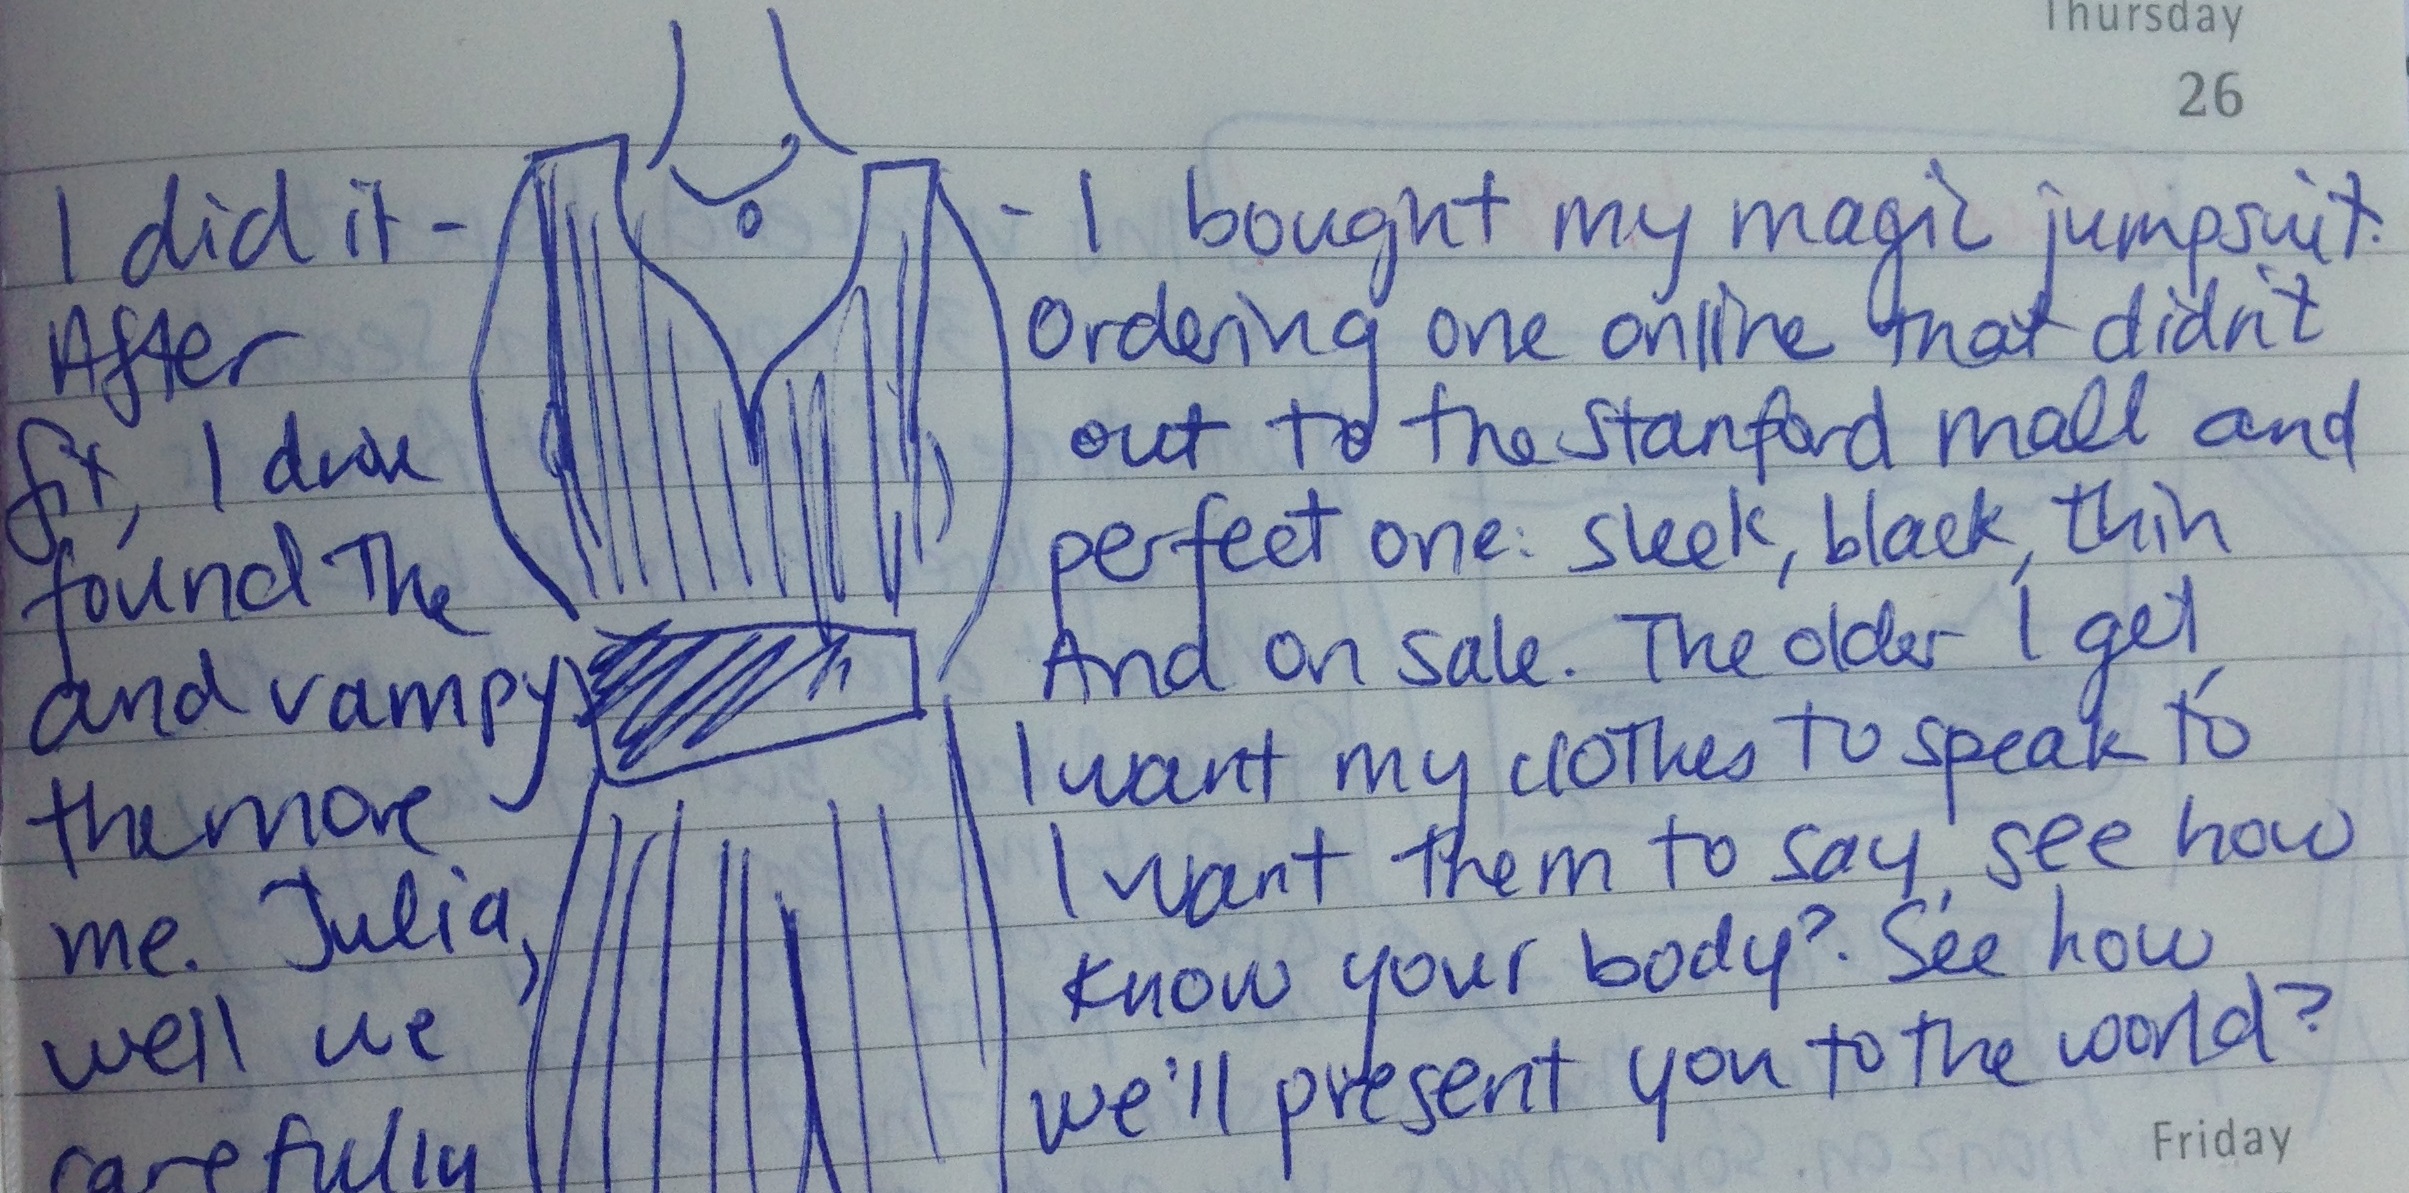 Thursday
26
I did it - - I bought my magic jumpsuit.
After Ordering one online that didn't
fit, I drove out to the Stanford mall and
found the perfect one: sleek, black, thin
and vampy. And on sale. The older I get,
the more I want my clothes to speak to
me. Julia, I want them to say, see how
well we know your body? See how
carefully we'll present you to the world?
Friday